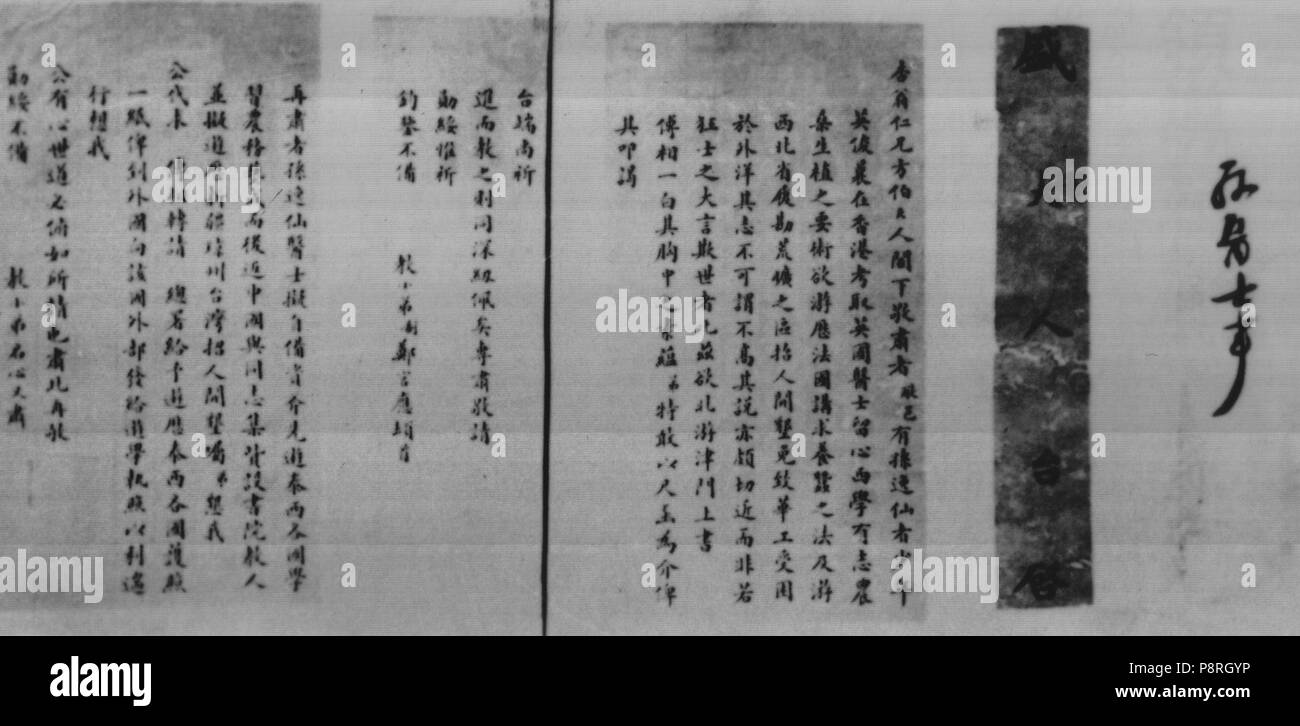 盛大人台啓
杏翁仁兄方伯大人閣下敬肅者敝邑有孫逸仙者少年
英俊曩在香港考取英國醫士留心西學有志農
桑生植之要術欲游歷法國講求養蠶之法及游
西北省履勘荒曠之區招人開墾免致華工受困
於外洋其志不可謂不高其說亦頗切近而非若
狂士之大言欺世者比茲欲北游津門上書
傅相一白其胸中之素蘊弟特敢以尺函為介俾
其叩謁
台端尚祈
進而教之則同深紉佩矣專肅敬請
勛綏惟祈
鈞鑒不備
教小弟制鄭官應頓首
再肅者孫逸仙醫士擬自備資斧先遊泰西各國學
習農務藝成而後返中國與同志集貲設書院教人
並擬遊歷新疆瓊州台灣招人開墾囑弟懇我
公代求 轉請 總署給予遊歷泰西各國護照
一紙俾到外國向該國外部發給遊學執照以利遄
行想我
公有心世道必俯如所請也肅此再敬
勛綏不備
教小弟名心又肅
alamy
Image ID: P8RGYP
www.alamy.com